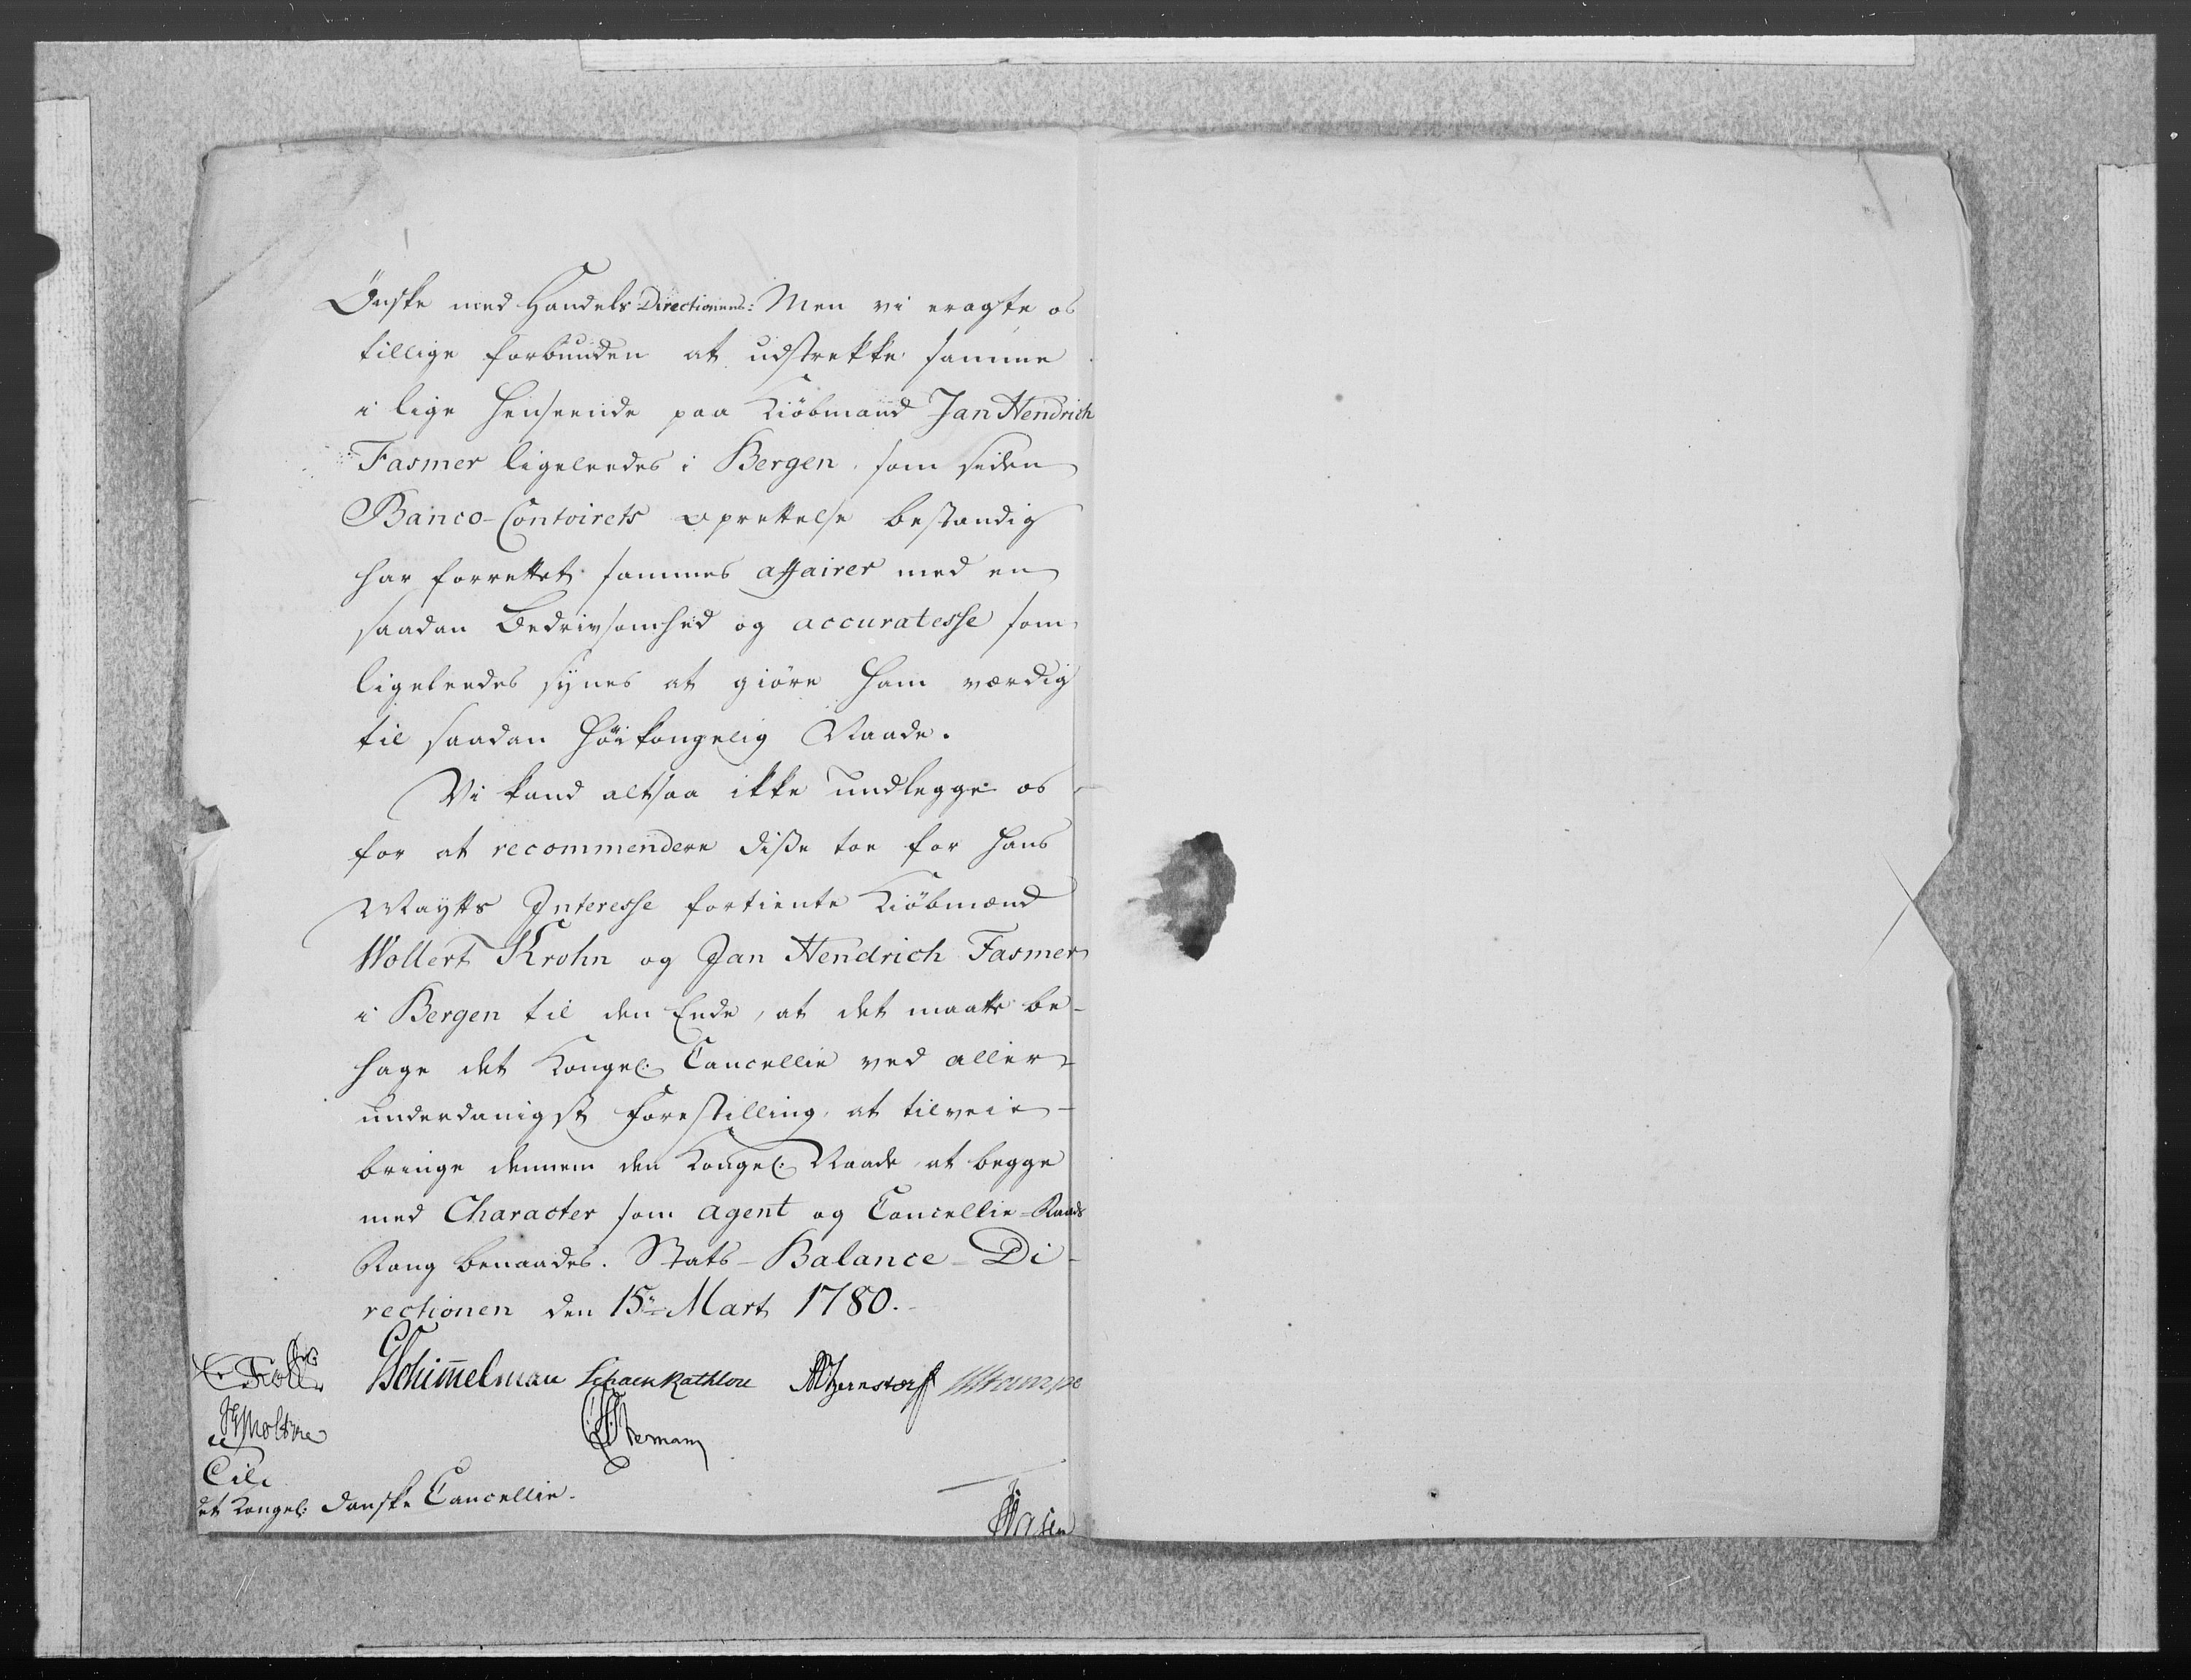 Ønske med Handels Directionens: Men vi eragte os
tillige forbunden at udstrekke samme
i lige Henseende paa Kiöbmand Jan Hendrich
Fasmer ligeleedes i Bergen, som siden
Banco-Contoirets oprettelse bestandig
har forrettet sammes affairer med en
saadan Bedrivsomhed og accuratesse som
ligeleedes synes at giöre ham værdig
til saadan höi kongelig Naade.
Vi kand altsaa ikke undlegge os
for at recommendere disse toe for Hans
Maytts Interesse fortiente Kiöbmænd
Wollert Krohn og Jan Hendrich Fasmer
i Bergen til den Ende, at det maatte be-
hage det Kongel: Cancellie ved aller-
underdanigst Forestilling, at tilveie-
bringe dennem den Kongel: Naade, at begge
med Character som agent og Cancellie-Raads
Rang benaades. Stats-Balance-Di-
rectionen den 15de Mart 1780.
Schimmelman Schack Rathlou AP Bernstorff Stampe
Moltke Stemann
Til
det Kongel: Danske Cancellie.